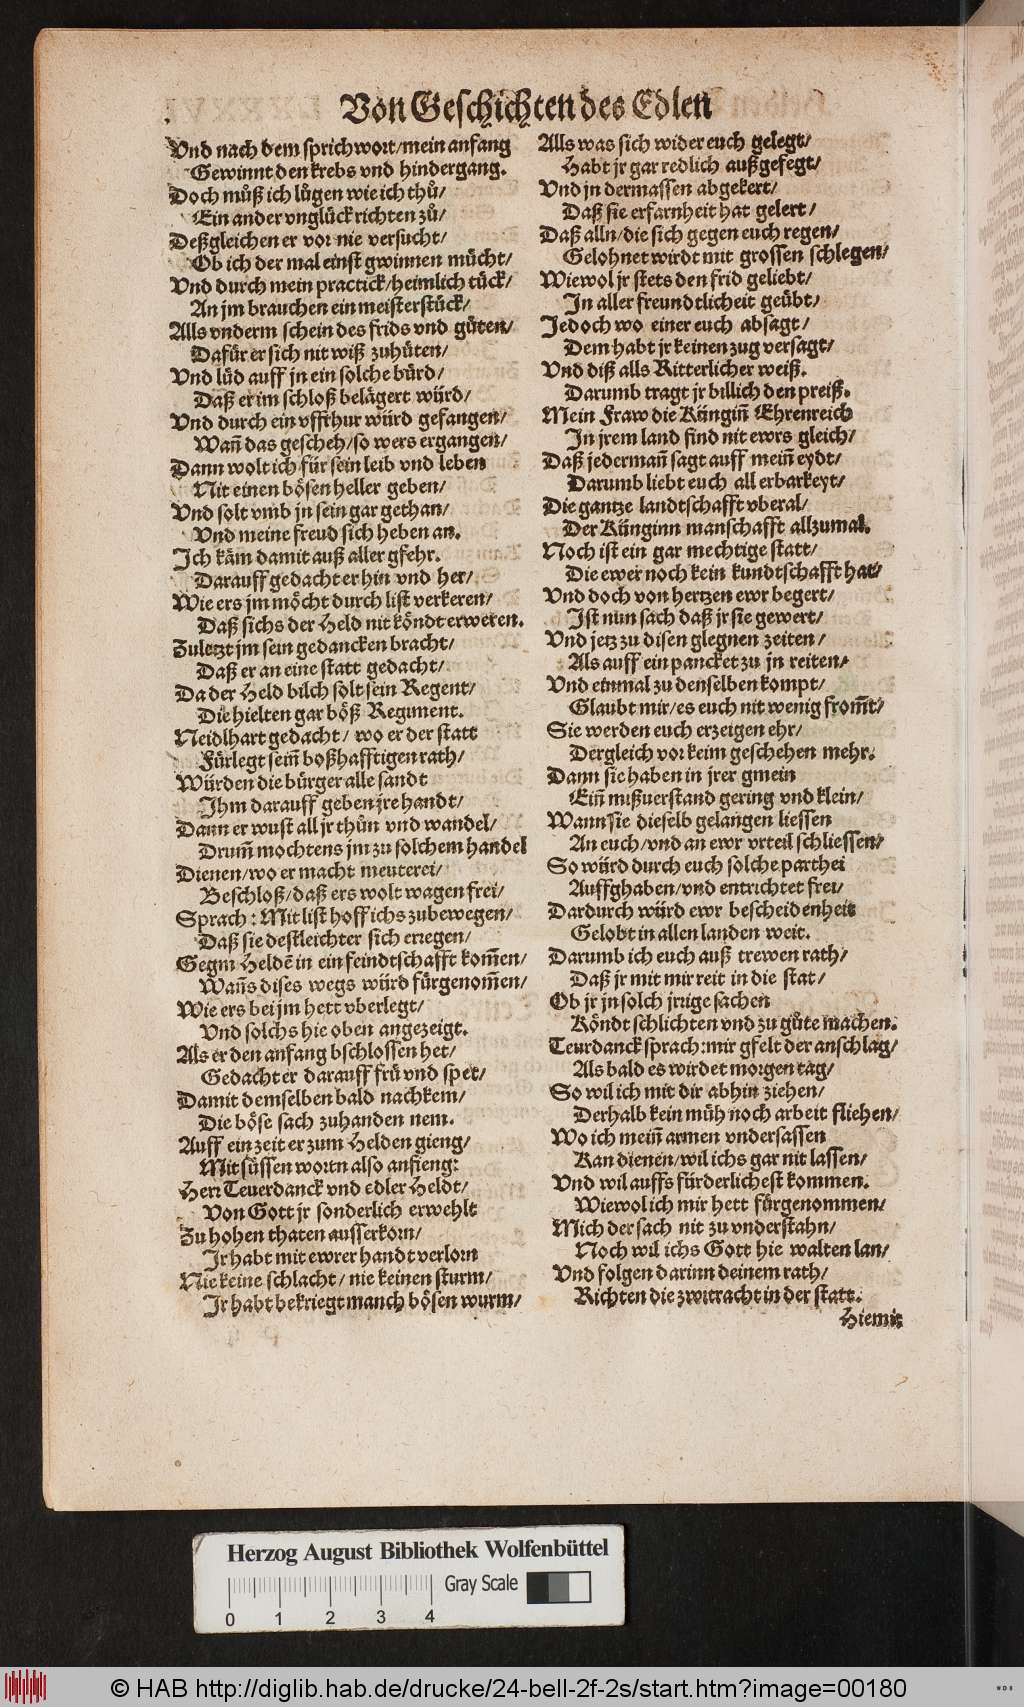 Von Geschichten des Edlen
Vnd nach dem sprichwort/mein anfang
Gewinnt den krebs vnd hindergang.
Doch můß ich lůgen wie ich thů/
Ein ander vnglück richten zů/
Deßgleichen er vor nie versucht/
Ob ich der mal einst gwinnen mücht/
Vnd durch mein practick/heimlich tück/
An jm brauchen ein meisterstück/
Alls vnderm schein des frids vnd güten/
Dafür er sich nit wiß zuhüten/
Vnd lüd auff jn ein solche bürd/
Daß er im schloß belägert würd/
Vnd durch ein vffrhur würd gefangen/
Wañ das gescheh/so wers ergangen/
Dann wolt ich für sein leib vnd leben
Nit einen bösen heller geben/
Vnd solt vmb jn sein gar gethan/
Vnd meine freud sich heben an.
Ich käm damit auß aller gfehr.
Darauff gedacht er hin vnd her/
Wie ers jm möcht durch list verkeren/
Daß sichs der Held nit köndt erweren.
Zuletzt jm sein gedancken bracht/
Daß er an eine statt gedacht/
Da der Held bilch solt sein Regent/
Die hielten gar böß Regiment.
Neidlhart gedacht/ wo er der statt
Fürlegt seim̃ boßhafftigen rath/
Würden die bürger alle sandt
Ihm darauff geben jre handt/
Dann er wust all jr thůn vnd wandel/
Drum̃ mochtens jm zu solchem handel
Dienen/wo er macht meuterei/
Beschloß/daß ers wolt wagen frei/
Sprach: Mit list hoff ichs zubewegen/
Daß sie destleichter sich erregen/
Gegm Heldẽ in ein feindtschafft kom̃en/
Wañs dises wegs würd fürgenom̃en/
Wie ers bei jm hett vberlegt/
Vnd solchs hie oben angezeigt.
Als er den anfang bschlossen het/
Gedacht er darauff frü vnd spet/
Damit demselben bald nachkem/
Die böse sach zuhanden nem.
Auff ein zeit er zum Helden gieng/
Mit süssen wortn also anfieng:
Herr Teuerdanck vnd edler Heldt/
Von Gott jr sonderlich erwehlt
Zu hohen thaten ausserkorn/
Ir habt mit ewrer handt verlorn
Nie keine schlacht/ nie keinen sturm/
Ir habt bekriegt manch bösen wurm/
Alls was sich wider euch gelegt/
Habt jr gar redlich außgefegt/
Vnd jn dermassen abgekert/
Daß sie erfarnheit hat gelert/
Daß alln/die sich gegen euch regen/
Gelohnet wirdt mit grossen schlegen/
Wiewol jr stets den frid geliebt/
In aller freundtlicheit geübt/
Jedoch wo einer euch absagt/
Dem habt jr keinen zug versagt/
Vnd diß alls Ritterlicher weiß.
Darumb tragt jr billich den preiß.
Mein Fraw die Künginn̄ Ehrenreich
In jrem land find nit ewrs gleich/
Daß jederman̄ sagt auff mein̄ eydt/
Darumb liebt euch all erbarkeyt/
Die gantze landtschafft vberal/
Der Künginn manschafft allzumal.
Noch ist ein gar mechtige statt/
Die ewer noch kein kundtschafft hat/
Vnd doch von hertzen ewr begert/
Ist nun sach daß jr sie gewert/
Vnd jetz zu disen glegnen zeiten/
Als auff ein pancket zu jn reiten/
Vnd einmal zu denselben kompt/
Glaubt mir/es euch nit wenig from̃t/
Sie werden euch erzeigen ehr/
Dergleich vor keim geschehen mehr.
Dann sie haben in jrer gmein
Ein̄ mißuerstand gering vnd klein/
Wann sie dieselb gelangen liessen
An euch/vnd an ewr vrteil schliessen/
So würd durch euch solche parthei
Auffghaben/vnd entrichtet frei/
Dardurch würd ewr bescheidenheit
Gelobt in allen landen weit.
Darumb ich euch auß trewen rath/
Daß jr mit mir reit in die stat/
Ob jr jn solch jrrige sachen
Köndt schlichten vnd zu gůte machen.
Teurdanck sprach:mir gfelt der anschlag/
Als bald es wirdet morgen tag/
So wil ich mit dir abhin ziehen/
Derhalb kein müh noch arbeit fliehen/
Wo ich mein̄ armen vndersassen
Kan dienen/wil ichs gar nit lassen/
Vnd wil auffs fürderlichest kommen.
Wiewol ich mir hett fürgenommen/
Mich der sach nit zu vnderstahn/
Noch wil ichs Gott hie walten lan/
Vnd folgen darinn deinem rath/
Richten die zwitracht in der statt.
Hiemit
Herzog August Bibliothek Wolfenbüttel
Gray Scale
0 1 2 3 4
© HAB http://diglib.hab.de/drucke/24-bell-2f-2s/start.htm?image=00180